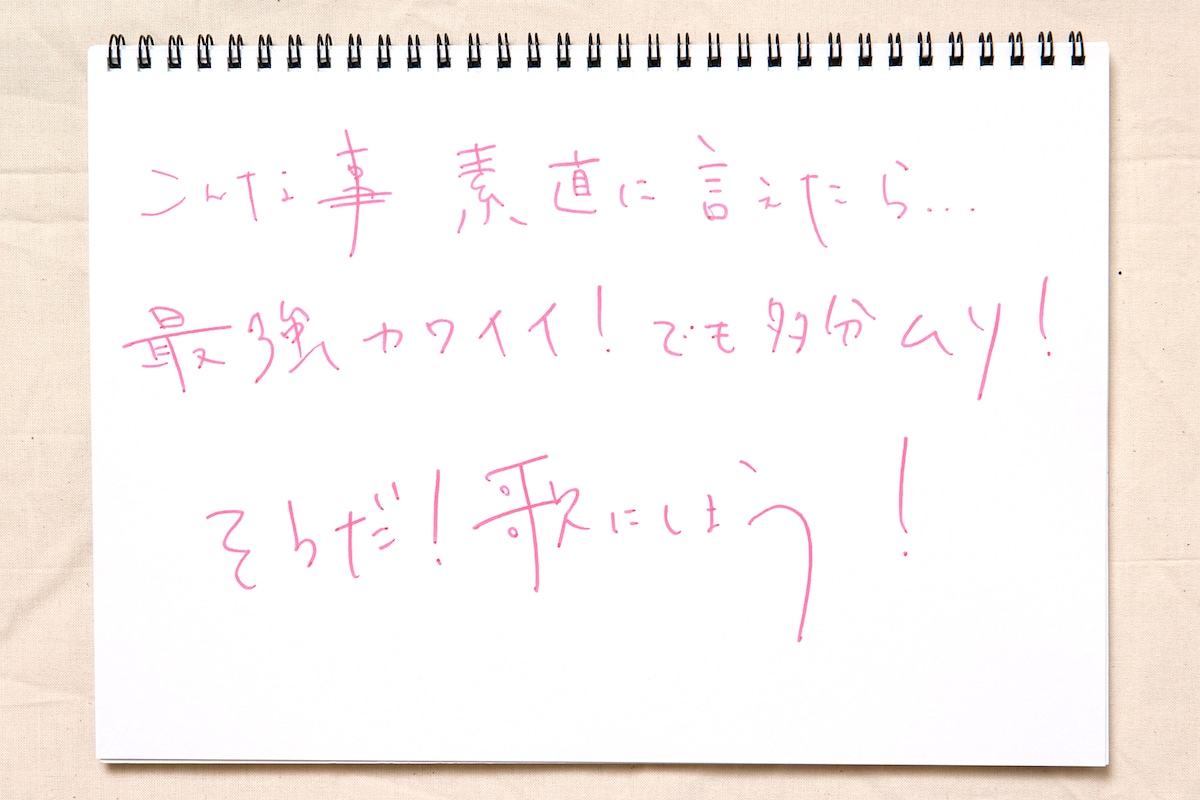 こんな事 素直に言えたら...
最強カワイイ！でも多分ムリ！
そうだ！歌にしよう！